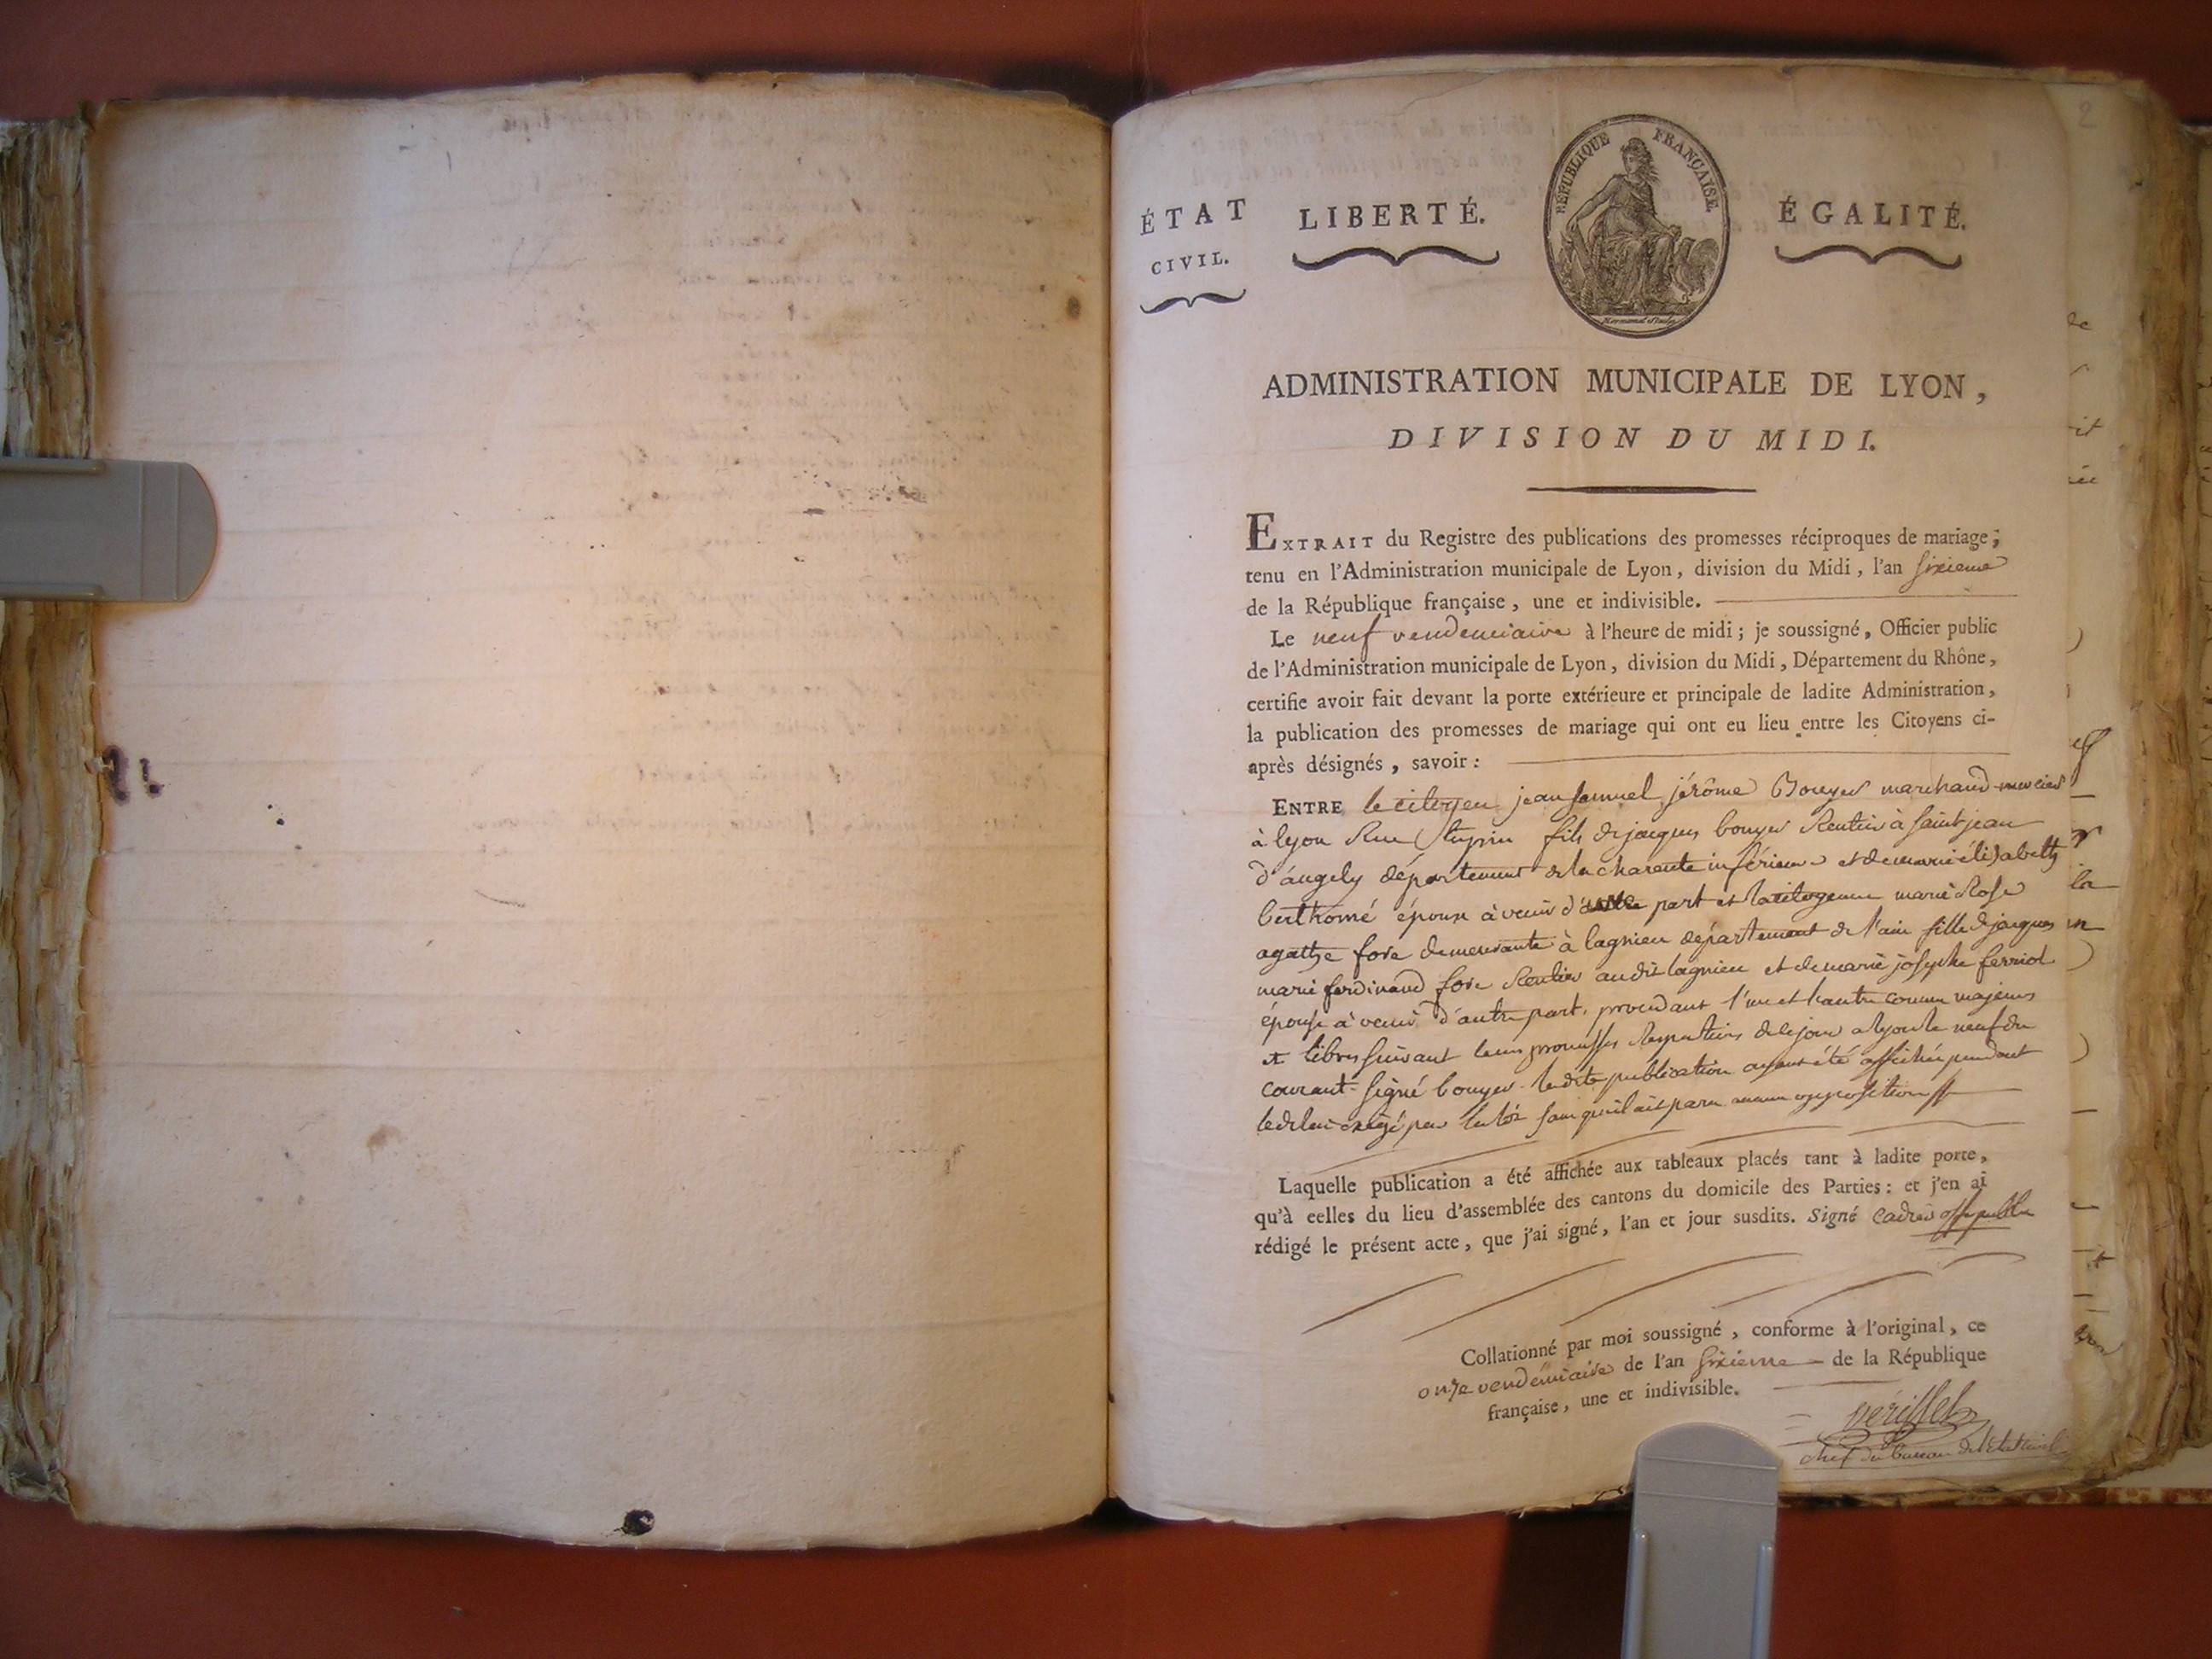 2
ÉTAT
CIVIL.
LIBERTÉ.
RÉPUBLIQUE FRANÇAISE.
ÉGALITÉ.
ADMINISTRATION MUNICIPALE DE LYON,
DIVISION DU MIDI.
EXTRAIT du Registre des publications des promesses réciproques de mariage;
tenu en l'Administration municipale de Lyon, division du Midi, l'an sixieme
de la République française, une et indivisible.
Le neuf vendemiaire à l'heure de midi; je soussigné, Officier public
de l'Administration municipale de Lyon, division du Midi, Département du Rhône,
certifie avoir fait devant la porte extérieure et principale de ladite Administration,
la publication des promesses de mariage qui ont eu lieu entre les Citoyens ci-
après désignés, savoir:
ENTRE le citoyen jean samuel jérôme Bouyer marchand mercier
à lyon Rue Tupin fils de jacques bouyer Rentier à saint jean
d'angely département de la charente inférieure et de marie élisabeth
berthomé époux à venir d'une part et la citoyenne marie Rose
agathe fore demeurante à lagnieu département de l'ain fille de jacques
marie ferdinand fore Rentier au dit lagnieu et de marie josephe ferriol
épouse à venir d'autre part, procédant l'un et l'autre comme majeurs
et libres suivant leurs promesses Respectives de ce jour a lyon le neuf du
courant signé bouyer ladite publication ayant été affichée pendant
le delai exigé par la loi sans qu'il ait paru aucune opposition
Laquelle publication a été affichée aux tableaux placés tant à ladite porte,
qu'à celles du lieu d'assemblée des cantons du domicile des Parties: et j'en ai
rédigé le présent acte, que j'ai signé, l'an et jour susdits. Signé off public
Collationné par moi soussigné, conforme à l'original, ce
onze vendémiaire de l'an sixieme de la République
française, une et indivisible.
périsset
chef du bureau de l'état civil